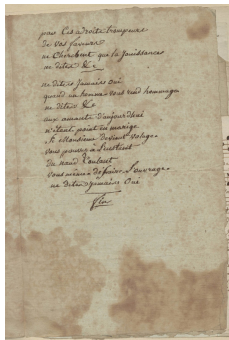 pour les adroits trompeurs
de vos faveurs
ne cherchent que la Jouissances
ne dites &c
ne dites Jamais oui
quand un homme vous rend hommage
ne dites &c
aux amants d'aujourdhui
n'étant point en mariage
Monsieur devient volage
vous pouvez à
vous même l'ouvrage
ne dites jamais Oui
fin